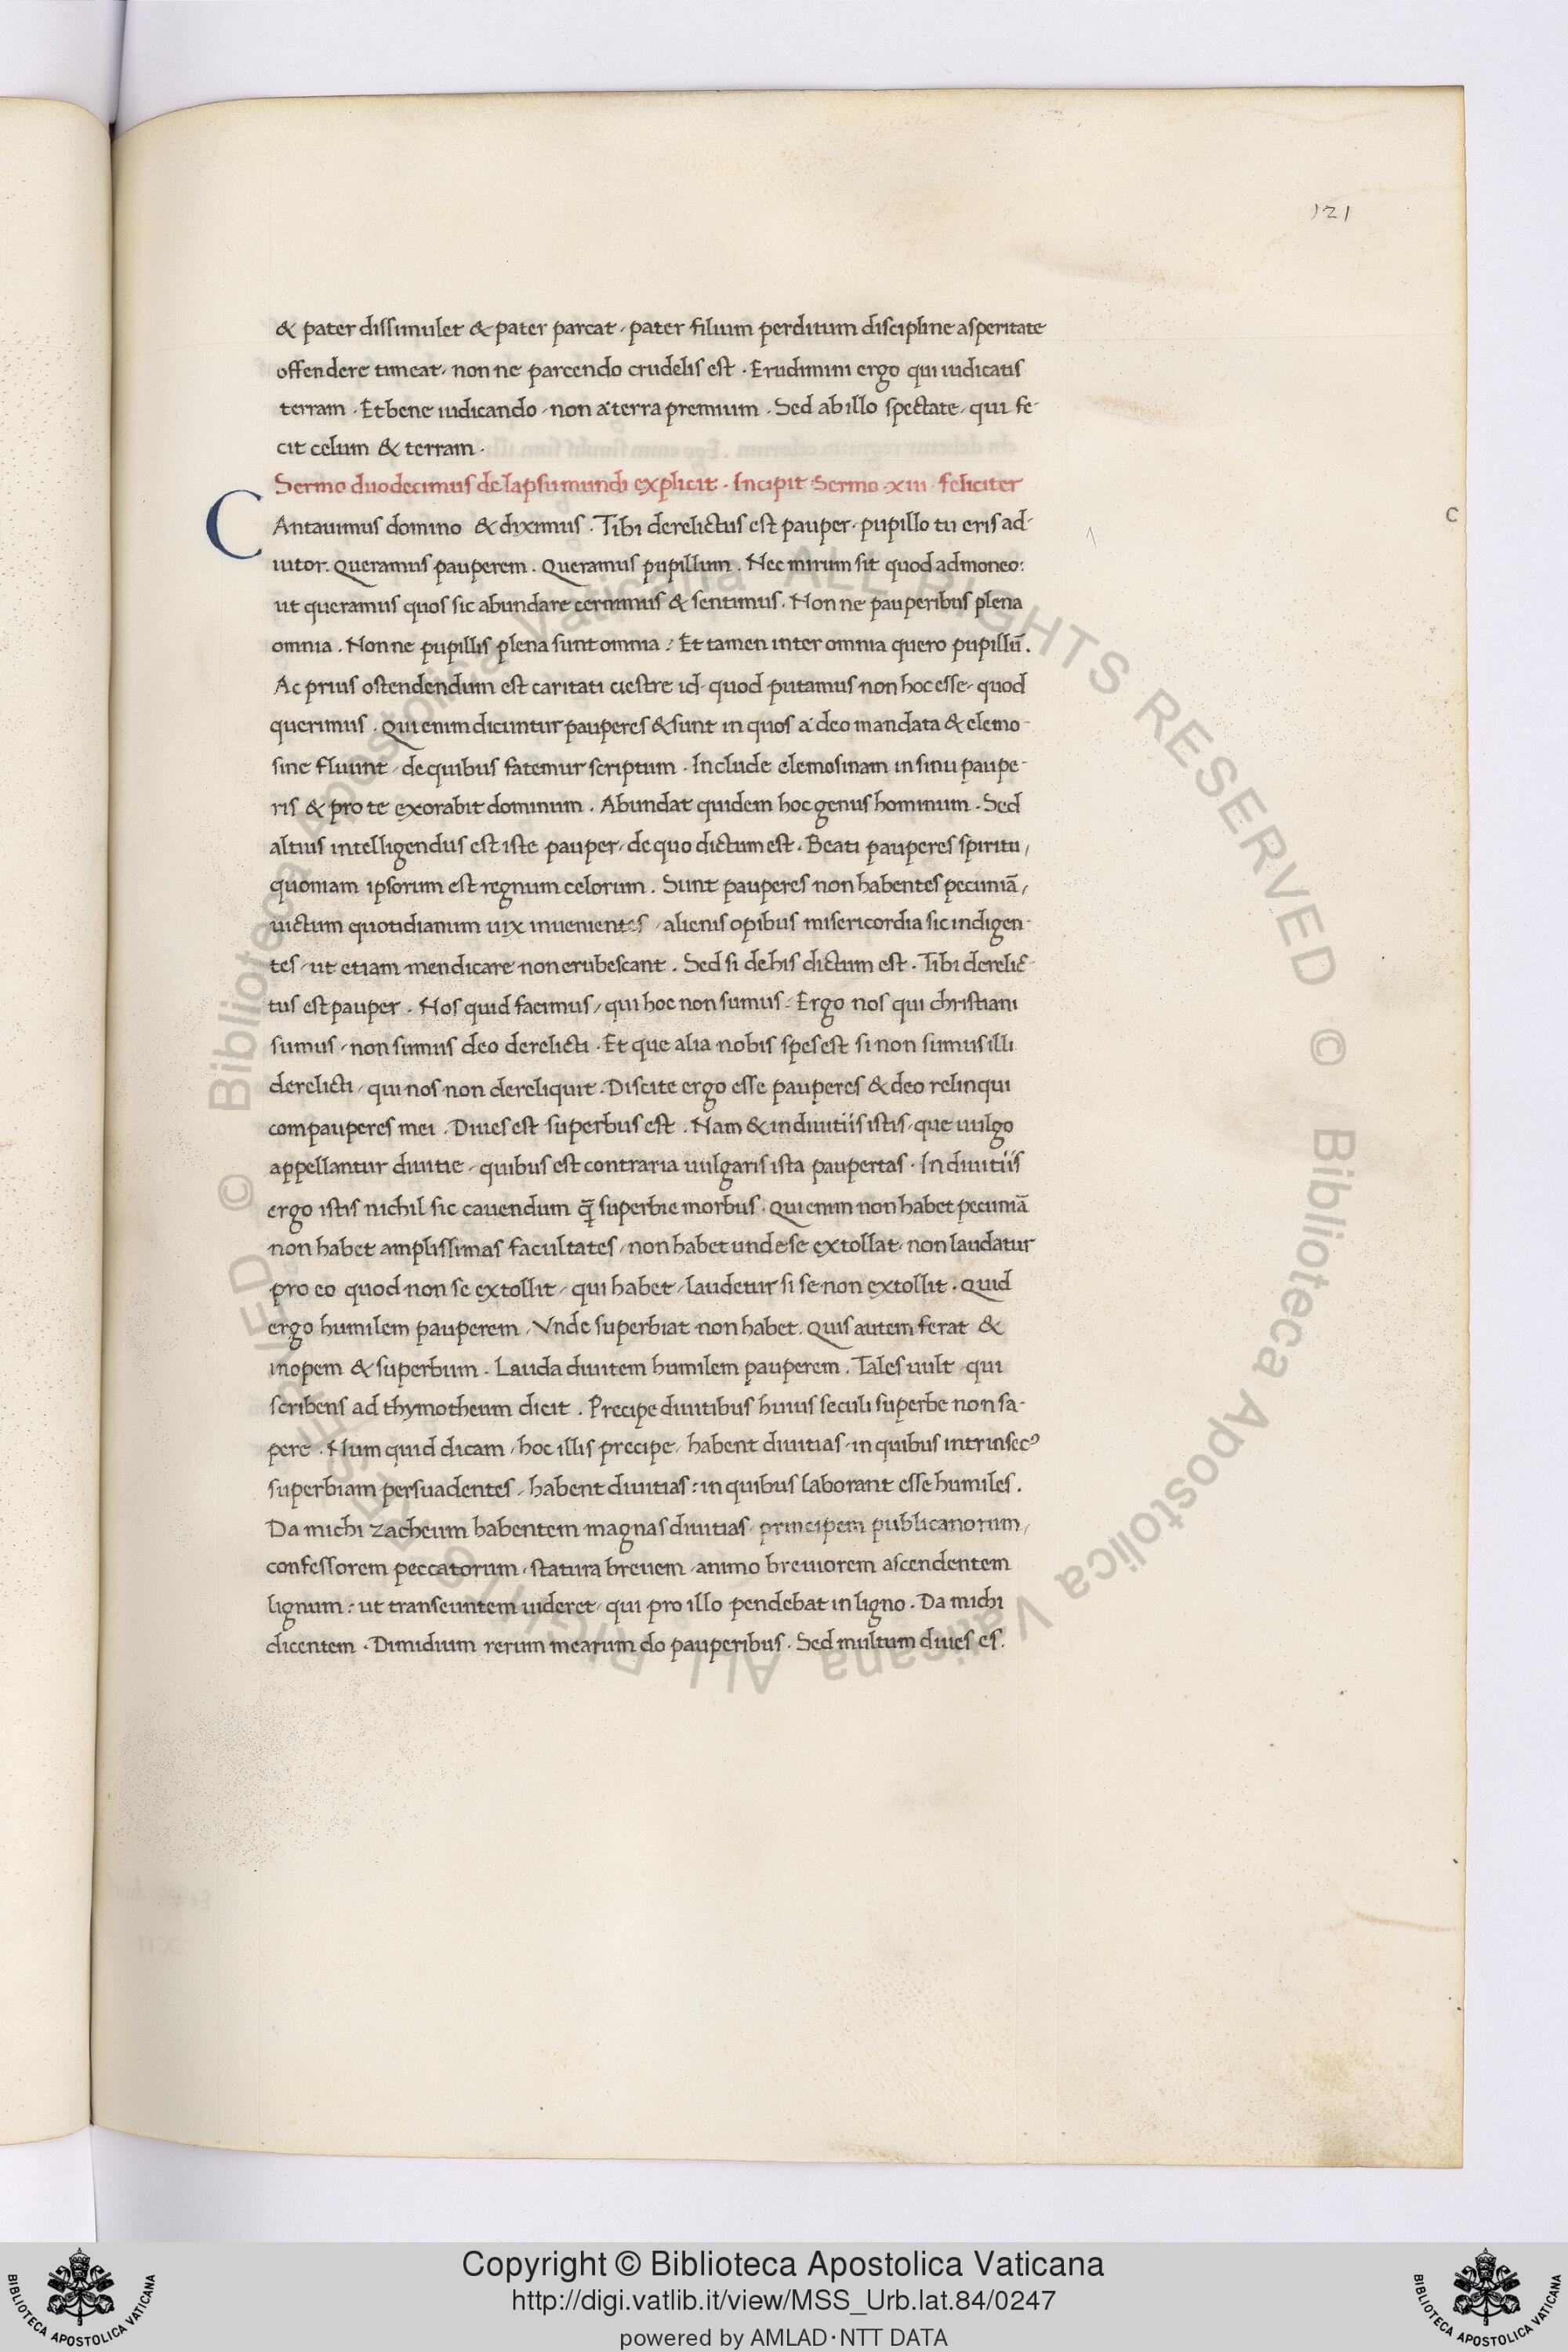 121
& pater dissimulet & pater parcat, pater filium perditum discipline asperitate
offendere timeat, non ne parcendo crudelis est. Erudimini ergo qui iudicatis
terram. Et bene iudicando, non a terra premium. Sed ab illo spectate, qui fe-
cit celum & terram.
Sermo duodecimus de lapsu mundi explicit. Incipit Sermo .xiii. feliciter
C
c
Antauimus domino & diximus. Tibi derelictus est pauper, pupillo tu eris ad-
iutor. Queramus pauperem. Queramus pupillum. Nec mirum sit quod admoneo:
ut queramus quos sic abundare cernimus & sentimus. Non ne pauperibus plena
omnia. Non ne pupillis plena sunt omnia? Et tamen inter omnia quero pupillū.
Ac prius ostendendum est caritati uestre id, quod putamus non hoc esse, quod
querimus. Qui enim dicuntur pauperes & sunt in quos a deo mandata & elemo-
sine fluunt, de quibus fatemur scriptum. Include elemosinam in sinu paupe-
ris & pro te exorabit dominum. Abundat quidem hoc genus hominum. Sed
altius intelligendus est iste pauper, de quo dictum est. Beati pauperes spiritu,
quoniam ipsorum est regnum celorum. Sunt pauperes non habentes pecuniā,
uictum quotidianum uix inuenientes, alienis opibus misericordia sic indigen-
tes, ut etiam mendicare non erubescant. Sed si de his dictum est. Tibi derelic-
tus est pauper. Nos quid facimus, qui hoc non sumus. Ergo nos qui christiani
sumus, non sumus deo derelicti. Et que alia nobis spes est si non sumus illi
derelicti, qui nos non dereliquit. Discite ergo esse pauperes & deo relinqui
compauperes mei. Diues est superbus est. Nam & in diuitiis istis, que uulgo
appellantur diuitie, quibus est contraria uulgaris ista paupertas. In diuitiis
ergo istis nichil sic cauendum q̄ superbie morbus. Qui enim non habet pecuniā
non habet amplissimas facultates, non habet unde se extollat, non laudatur
pro eo quod non se extollit, qui habet, laudetur si se non extollit. Quid
ergo humilem pauperem, Vnde superbiat non habet. Quis autem ferat &
inopem & superbum. Lauda diuitem humilem pauperem. Tales uult, qui
scribens ad thymotheum dicit. Precipe diuitibus huius seculi superbe non sa-
pere. Num quid dicam, hoc illis precipe, habent diuitias, in quibus intrinsecꝰ
superbiam persuadentes, habent diuitias: in quibus laborant esse humiles.
Da michi zacheum habentem magnas diuitias, principem publicanorum,
confessorem peccatorum, statura breuem, animo breuiorem ascendentem
lignum: ut transeuntem uideret, qui pro illo pendebat in ligno. Da michi
dicentem. Dimidium rerum mearum do pauperibus. Sed multum diues es.
© Biblioteca Apostolica Vaticana ALL RIGHTS RESERVED © Biblioteca Apostolica Vaticana ALL RIGHTS RESERVED
Copyright © Biblioteca Apostolica Vaticana
http://digi.vatlib.it/view/MSS_Urb.lat.84/0247
powered by AMLAD·NTT DATA
BIBLIOTECA APOSTOLICA VATICANA
BIBLIOTECA APOSTOLICA VATICANA